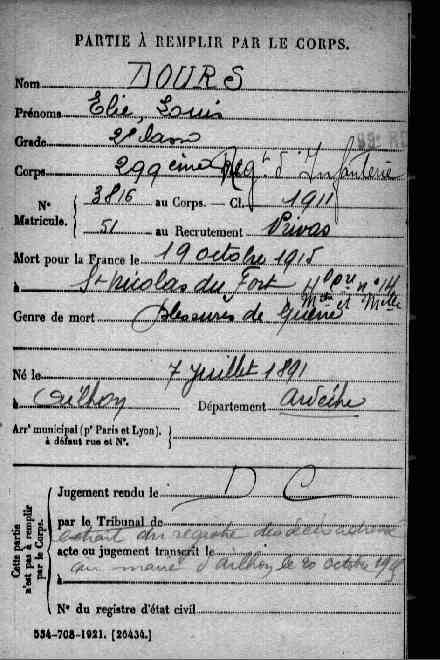 PARTIE À REMPLIR PAR LE CORPS.
Nom DOURS
Prénoms Elie, Louis
Grade 2e classe
Corps 299 eme Reg.t d'Infanterie
N° Matricule. { 3816 au Corps. — Cl. 1911
51 au Recrutement Privas
Mort pour la France le 19 octobre 1915
à St Nicolas du Port H n° 14
Mthe et Mlle
Genre de mort blessures de Guerre
Né le 7 Juillet 1891
à Ailhon Département Ardèche
Arrt municipal (pr Paris et Lyon),
à défaut rue et N°.
Cette partie n'est pas à remplir par le Corps.
Jugement rendu le D C
par le Tribunal de
extrait du registre des décès
acte ou jugement transcrit le
à la mairie d'Ailhon le 20 octobre
à
N° du registre d'état civil
534-708-1921. [26434.]